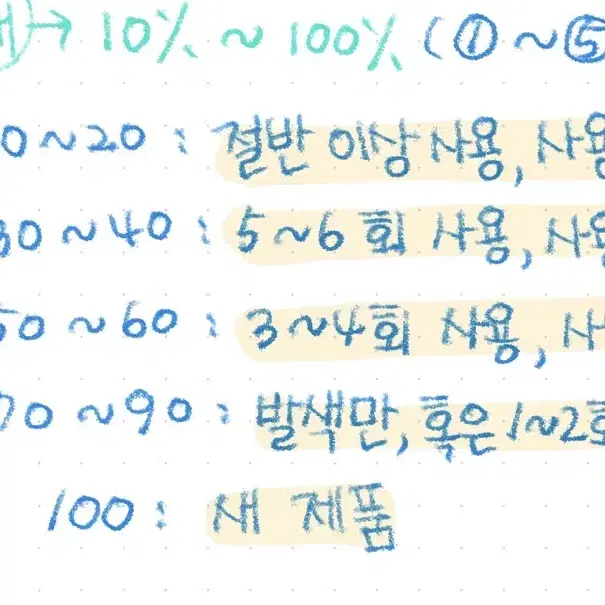 → 10% ~ 100% (① ~ ⑤
0~20 : 절반 이상 사용, 사용
30 ~ 40 : 5 ~6 회 사용, 사용
50 ~ 60 : 3 ~4회 사용, 사
70 ~90 : 발색만, 혹은 1~2회
100 : 새 제품